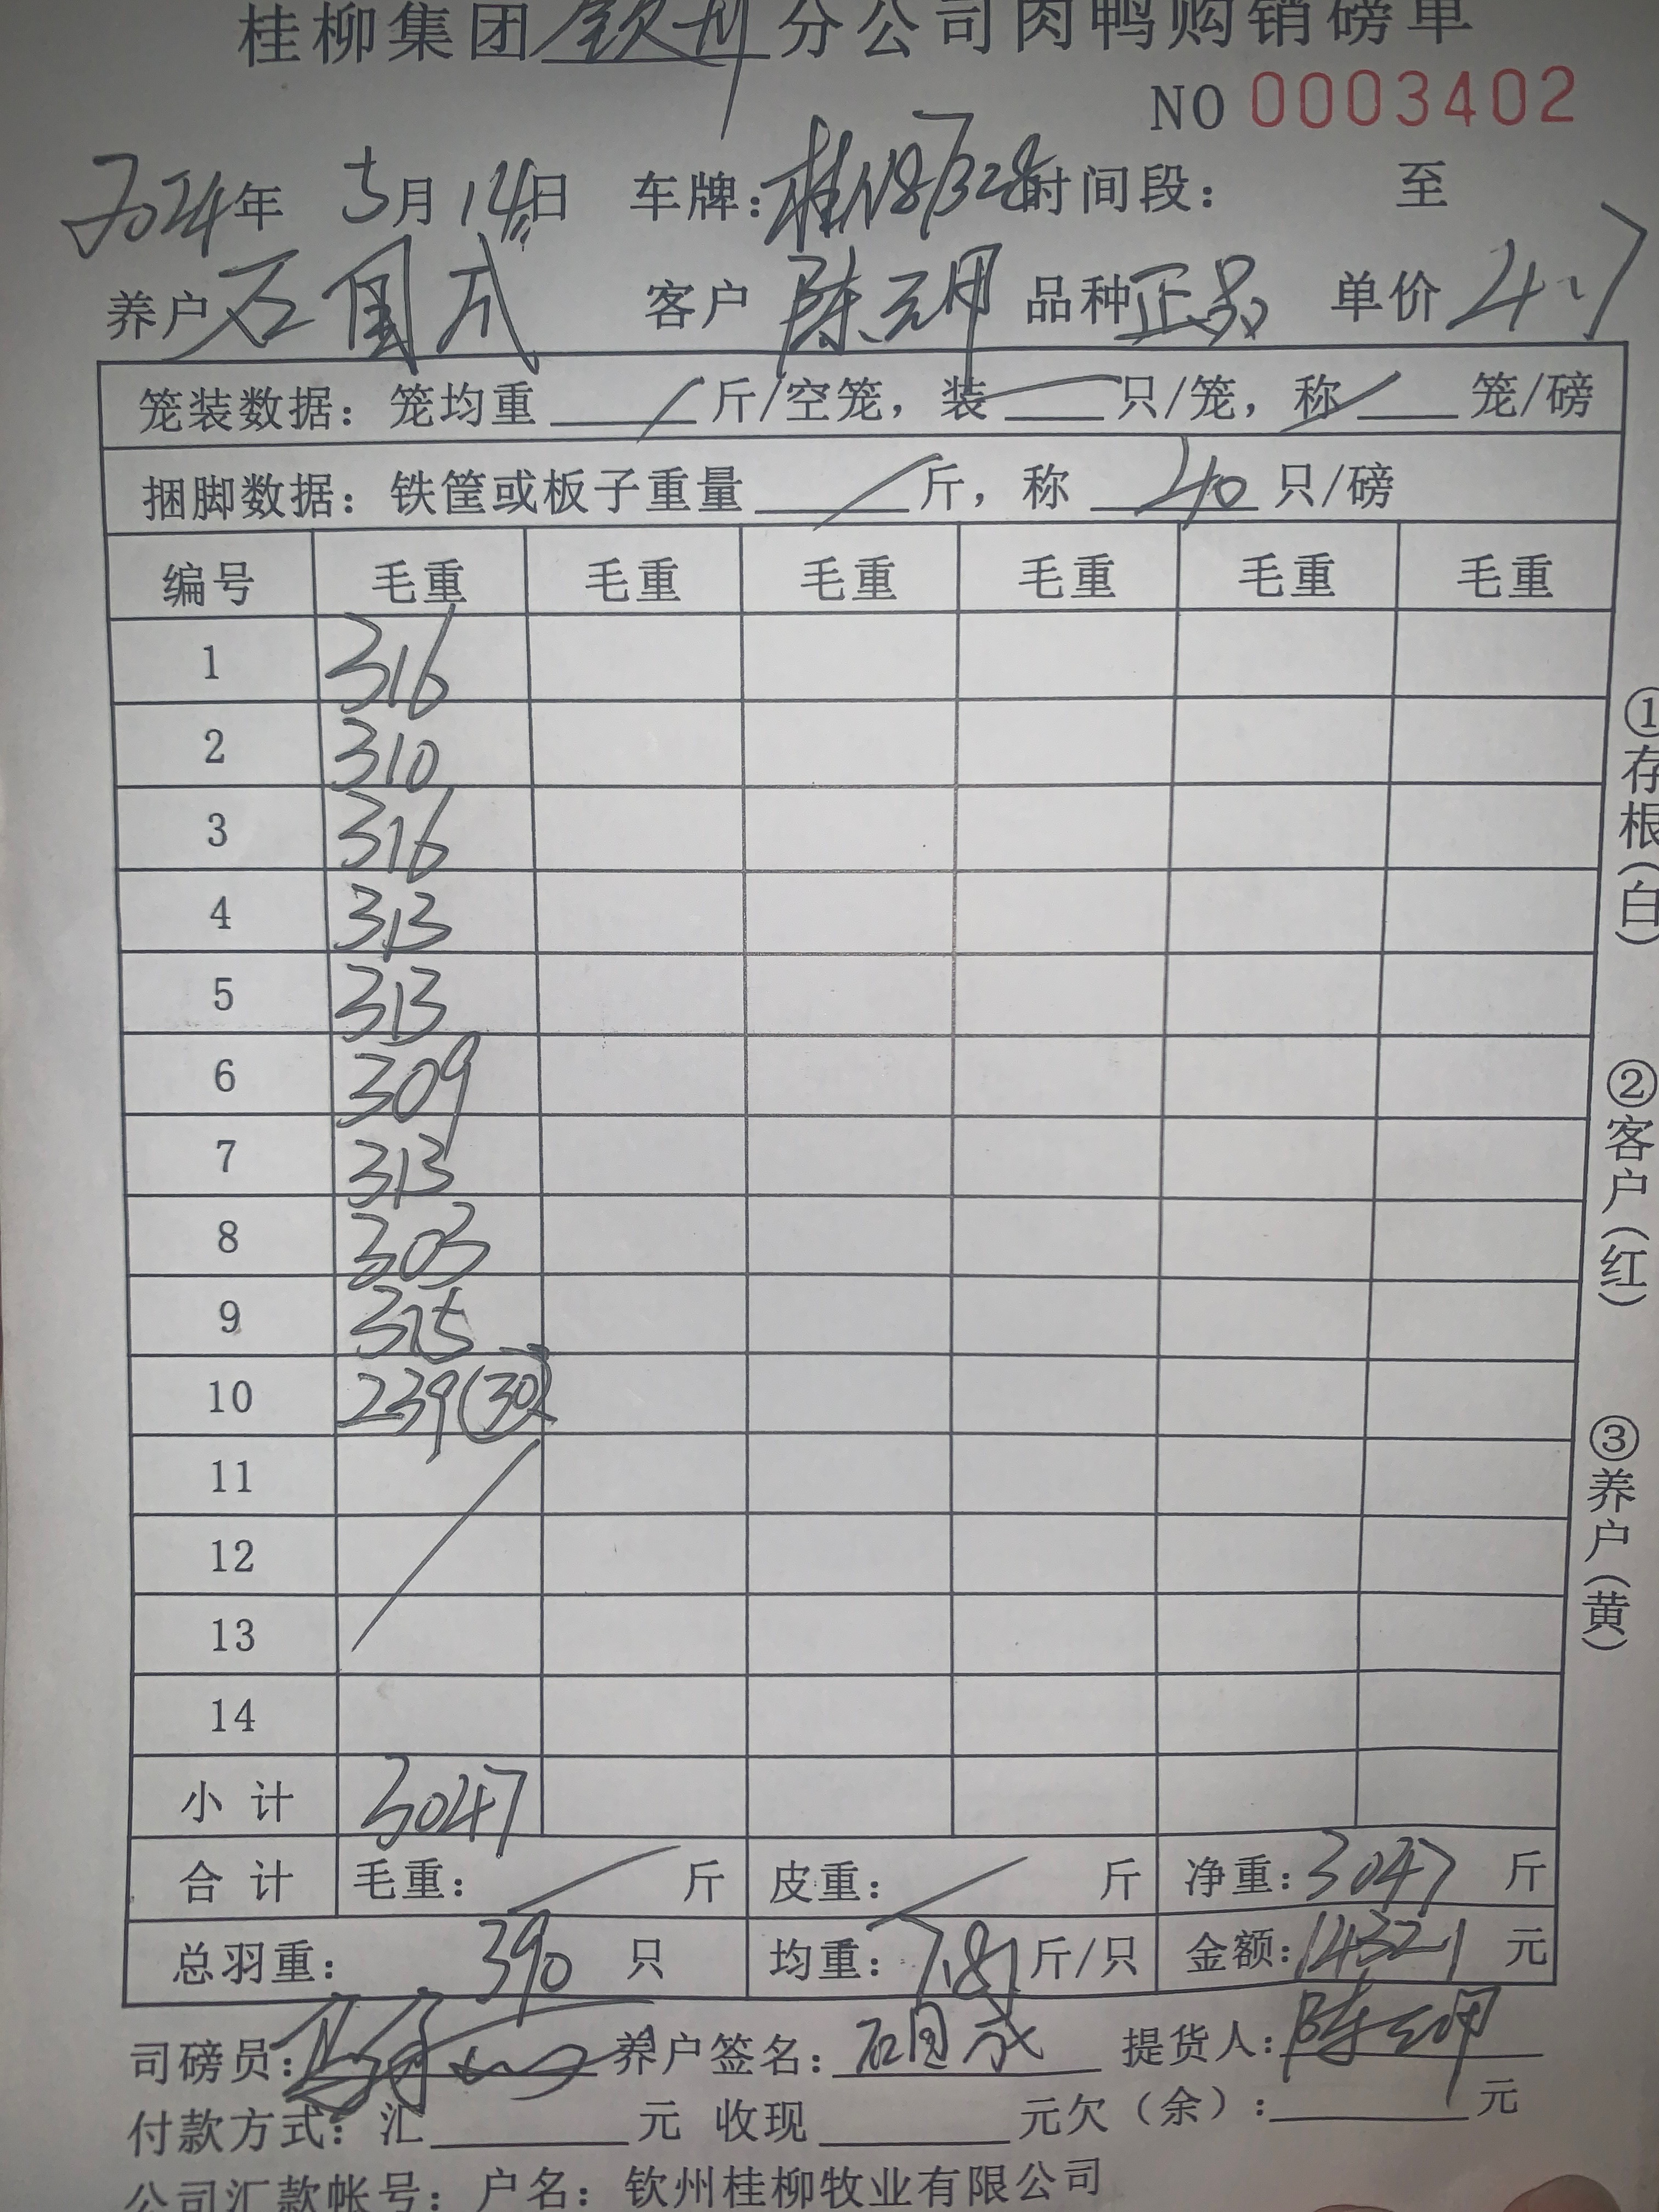 桂柳集团钦州分公司肉鸭购销磅单
NO 0003402
2024年 5月 14日 车牌: 时间段: 至
养户 石国成 客户 陈云甲 品种 正品 单价 4.7
笼装数据: 笼均重 / 斤/空笼, 装 / 只/笼, 称 / 笼/磅
捆脚数据: 铁筐或板子重量 / 斤, 称 40 只/磅
编号 毛重 毛重 毛重 毛重 毛重 毛重
1 316
2 310
3 316
4 313
5 313
6 309
7 313
8 303
9 315
10 239(30只)
11
12
13
14
小计 3047
合计 毛重: / 斤 皮重: / 斤 净重: 3047 斤
总羽重: 390 只 均重: 7.81 斤/只 金额: 14321 元
司磅员: 养户签名: 石国成 提货人: 陈云甲
付款方式: 汇 元 收现 元欠(余): 元
公司汇款帐号: 户名: 钦州桂柳牧业有限公司
①存根(白)
②客户(红)
③养户(黄)